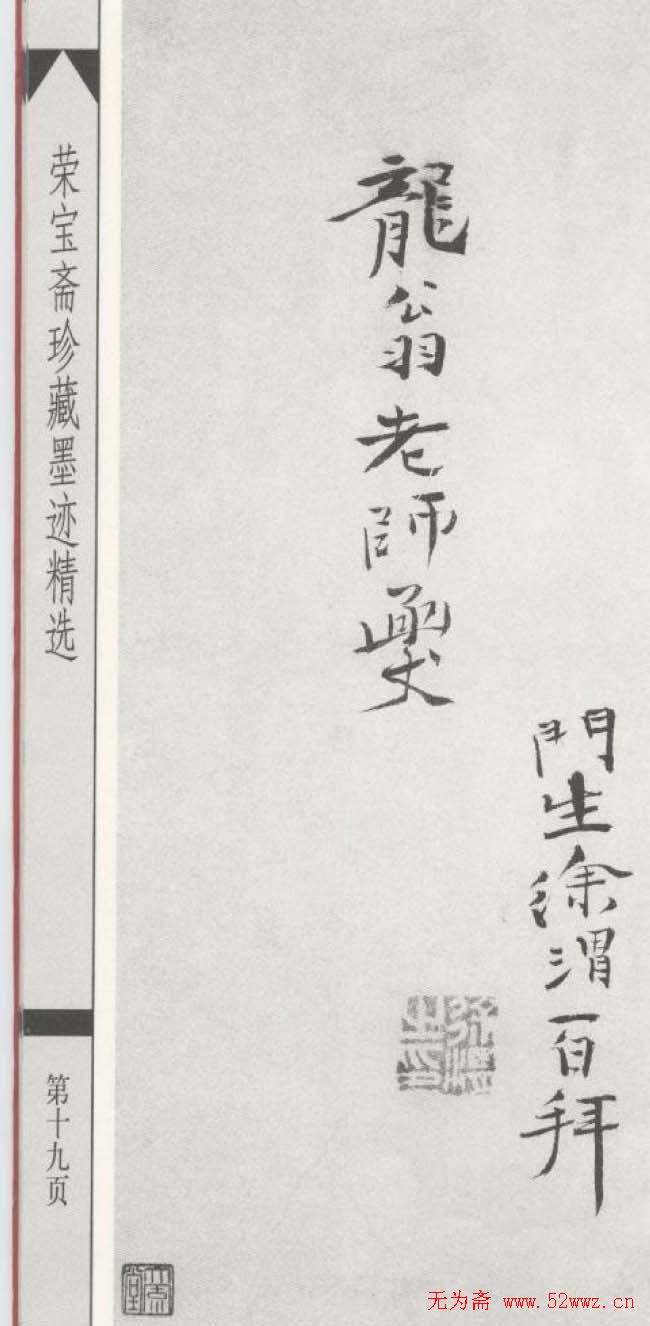 門生徐渭百拜
龍翁老師函丈
荣宝斋珍藏墨迹精选
第十九页
无为斋 www.52wwz.cn